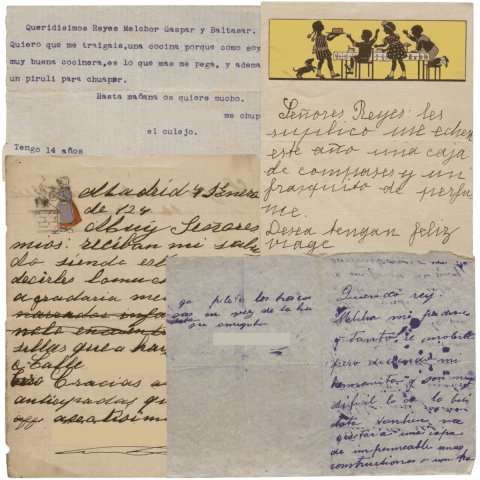 Queridisimos Reyes Melchor Gaspar y Baltasar.
Quiero que me traigais,una cocina porque como soy
muy buena cocinera,es lo que mas me pega, y adema
un piruli para chupar.
Hasta mañana os quiere mucho.
me chup
el culejo.
Tengo 14 años
Señores Reyes: les
suplico me echen
este año una caja
de compases y un
frasquito de perfu
me.
Desea tengan feliz
viage
Madrid 4 Enero
de 124
Muy Señores
mios: reciban mi salu
do siendo est
decirles lo mucho
agradaria me

que a ha
Caffe
Gracias a
anticipadas qu

ya
en vez de la
su amigito
Querido rey
Melchor mi padre
y tanto le moleste
pero diciendo mi
hermanito y son muy
dificil lo de la bici
tambien me
gustaria una capa
de impermeable unas
construcciones o un tra